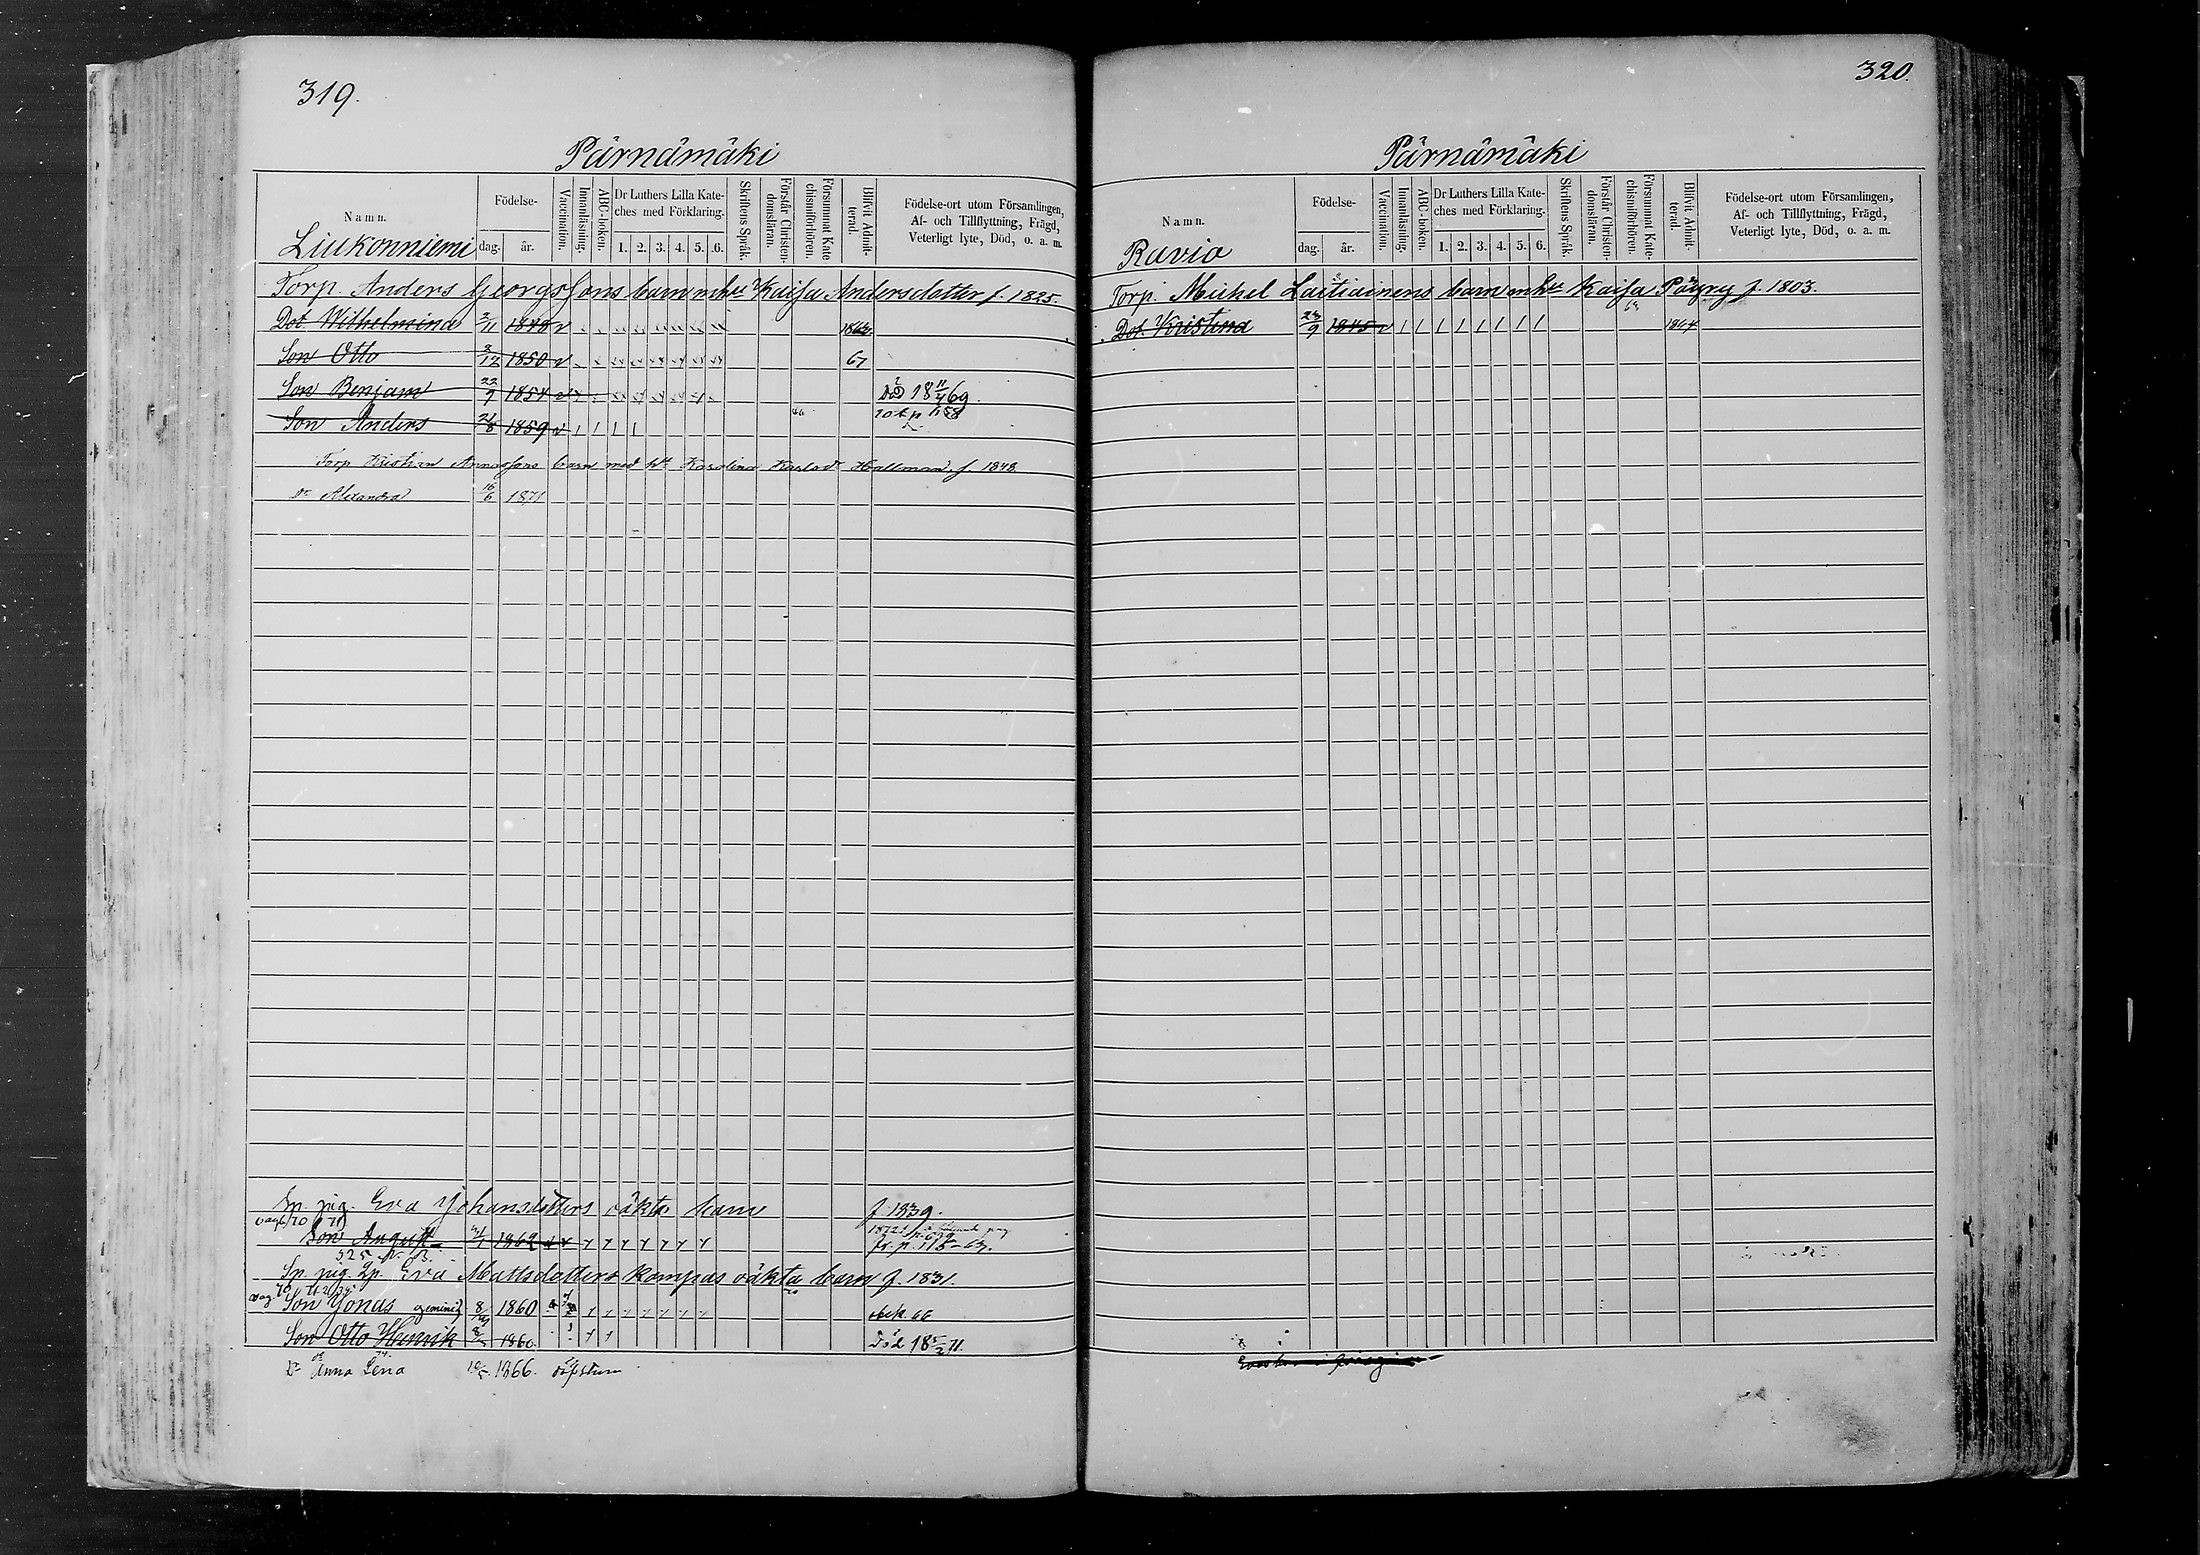 319.
Pärnämäki
Namn.
Födelse-
dag. år.
Vaccination.
Innanläsning.
ABC-boken.
Dr Luthers Lilla Kate-
ches med Förklaring.
1. 2. 3. 4. 5. 6.
Skriftens Språk.
Förstår Christen-
domsläran.
Försummat Kate
chismiförhören.
Blifvit Admit-
terad.
Födelse-ort utom Församlingen,
Af- och Tillflyttning, Frägd,
Veterligt lyte, Död, o. a. m.
Liukonniemi
Torp. Anders Georgssons barn m hu Kaisa Andersdotter f. 1825.
Dot. Wilhelmina 2/11 1848 v
Son Otto 2/12 1850 v 67
Son Benjam 22/9 1854 v Död 18 11/4 69
Son Anders 21/8 1859 v
Torp Kristian Annassons barn med ht Karolina Karlsdr Hallman f. 1848
Dr Alexandra 16/6 1871
Sp. pig. Eva Johansdotters oäkta barn f. 1839.
Son August 1862
525
Sp. pig. Eva Mattsdotters Kompas oäkta barn f. 1831.
Son Jonas gemini 1860
Son Otto Henrik 1860 Död 18 71.
Dr Anna Lena 1866.
320.
Pärnämäki
Namn.
Födelse-
dag. år.
Vaccination.
Innanläsning.
ABC-boken.
Dr Luthers Lilla Kate-
ches med Förklaring.
1. 2. 3. 4. 5. 6.
Skriftens Språk.
Förstår Christen-
domsläran.
Försummat Kate-
chismiförhören.
Blifvit Admit-
terad.
Födelse-ort utom Församlingen,
Af- och Tillflyttning, Frägd,
Veterligt lyte, Död, o. a. m.
Ravio
Torp. Mickel Laitiainens barn m hu Kaisa Päyry f. 1803.
Dot. Kristina 23/9 1845 v 1864